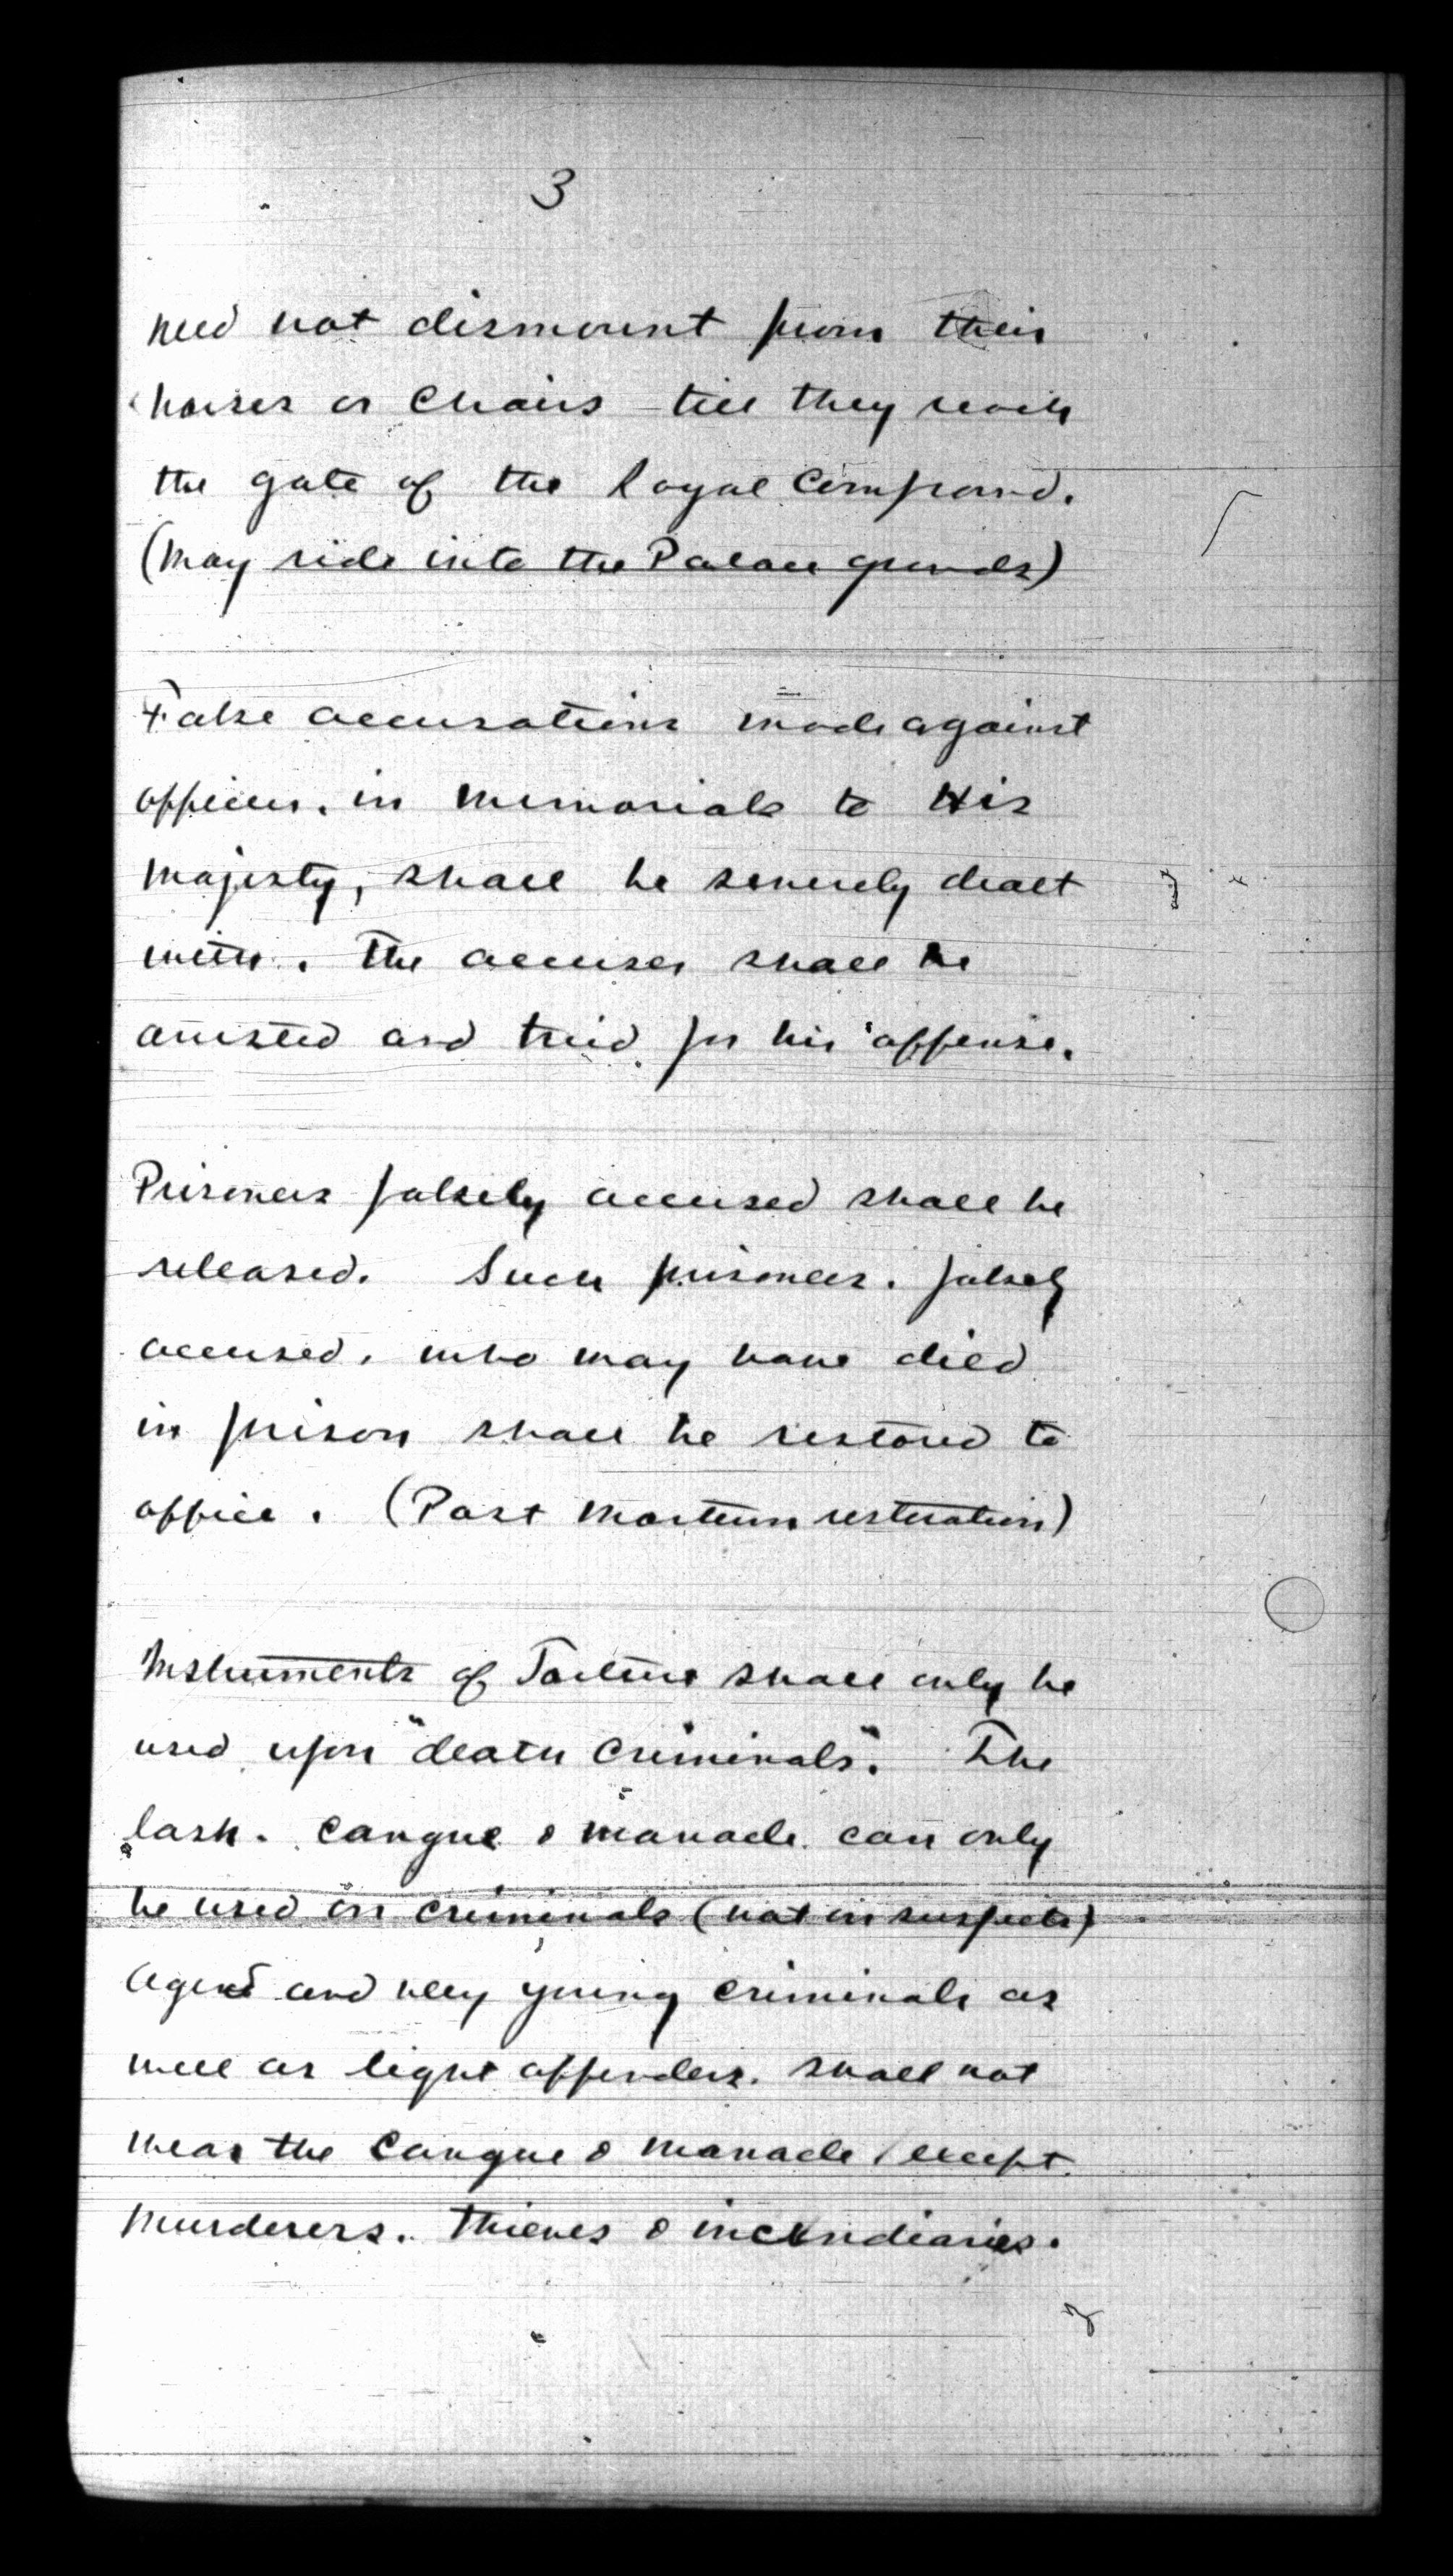 3
need not dismount from their
horses or Chairs till they reach
the gate of the Royal Compound.
(May ride into the Palace grounds)
False accusations made against
officers, in memorials to His
Majesty, shall be severely dealt
with. The accuser shall be
arrested and tried for his offense.
Prisoners falsely accused shall be
released. Such prisoners, falsely
accused, who may have died
in prison shall be restored to
office. (Post Mortem restoration)
Instruments of Torture shall only be
used upon "death Criminals". The
lash, Cangue & manacle can only
be used on Criminals (not on suspects)
Aged and very young Criminals as
well as light offenders, shall not
wear the Cangue & manacle, except
murderers, thieves & incendiaries.